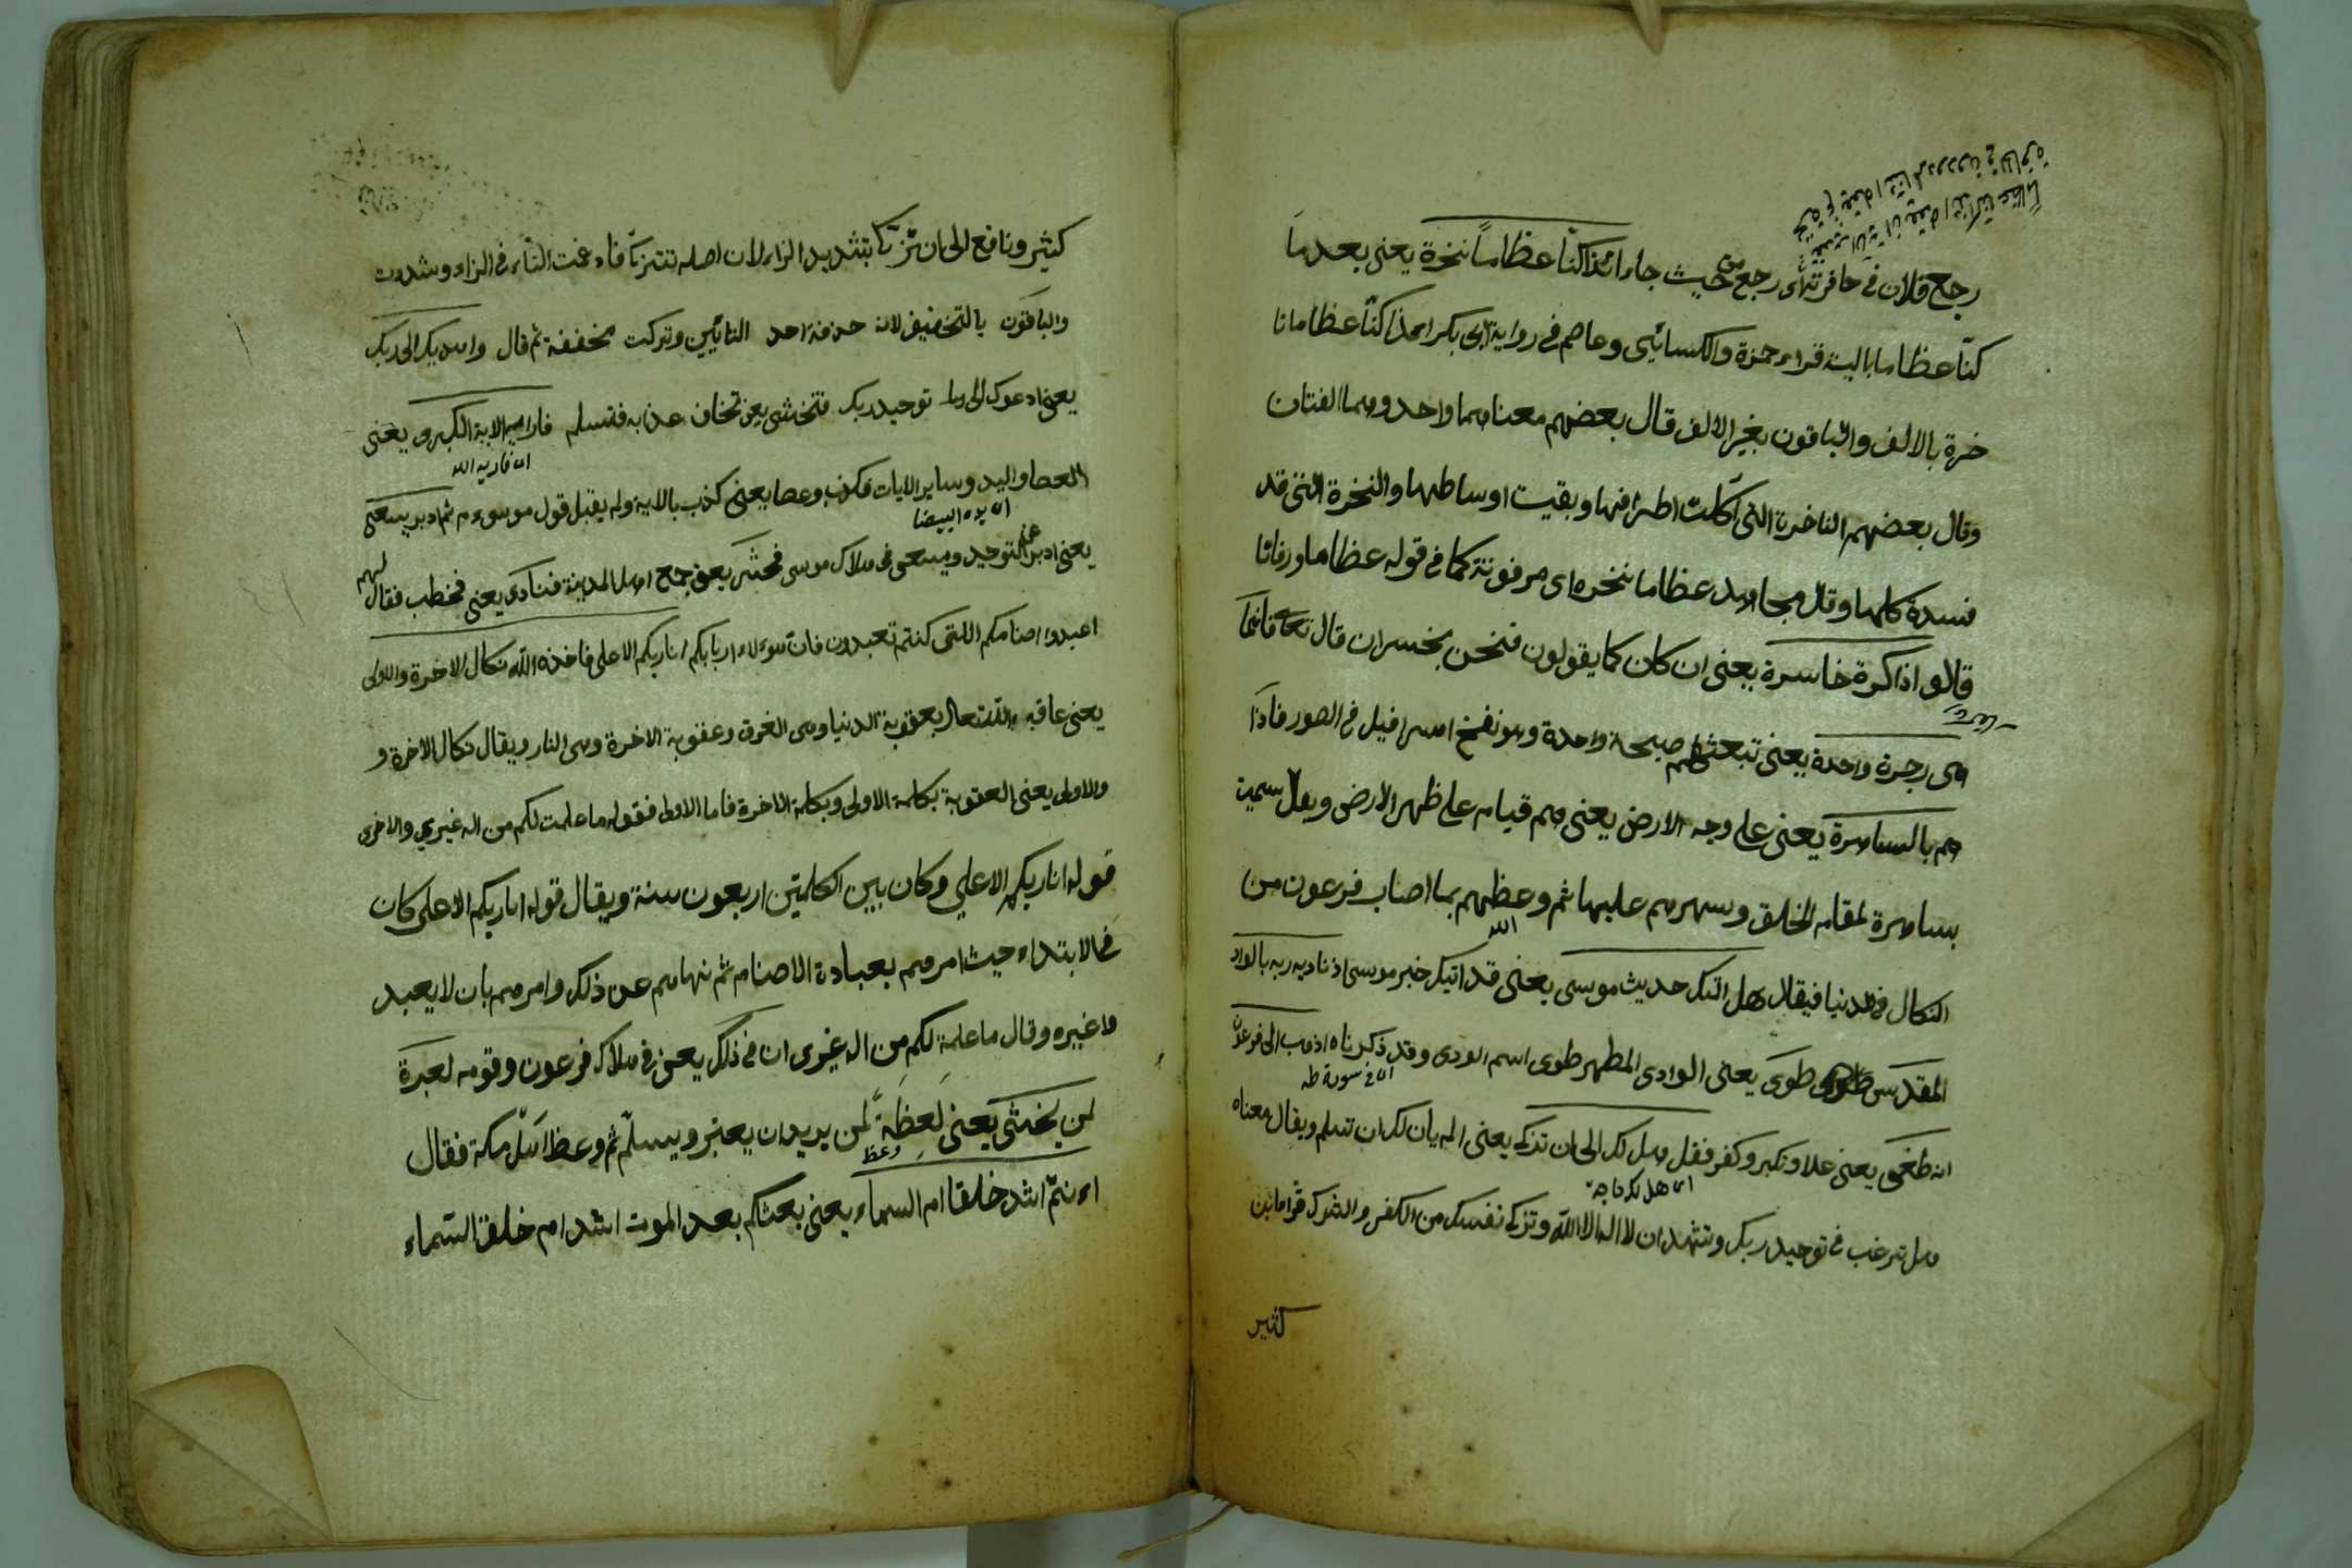 رجع فلان في حافرته اى رجع من حيث جاء ائذا كنّا عظاماً نخرة يعنى بعد ما
كنّا عظاما بالية قراء حمزة والكسائيى وعاصم فى رواية ابى بكر ائذا كنّا عظاما نا
خرة بالالف والباقون بغير الالف قال بعضهم معناهما واحد وهما لغتان
وقال بعضهم الناخرة التى اكلت اطرافها وبقيت اوساطها والنخرة التى قد
فسدة كلها وقال مجاهد عظاما نخره اى مرفوتة كما فى قوله عظاما ورفاتا
قالو اذا كرة خاسرة يعنى ان كان كما يقولون فنحن بخسران قال تعا فانما
هى زجرة واحدة يعنى تبعثهم صيحة واحدة وهو نفخ اسرافيل فى الصور فاذا
هم بالساهرة يعنى على وجه الارض يعنى هم قيام على ظهر الارض ويقال سميت
بساهرة لمقام الخلق وسهرهم عليها ثم وعظهم بما اصاب فرعون من
الله
النكال فى الدنيا فيقال هل اتيك حديث موسى يعنى قد اتيك خبر موسى اذ ناديه ربه بالواد
المقدس طوى يعنى الوادى المطهر طوى اسم الودى وقد ذكرناه اذهب الى فرعون
اى فى سورة طه
انه طغى يعنى علا وتكبر وكفر فقل هل لك الى ان تزكى يعنى الم يان لك ان تسلم ويقال معناه
اى هل لك حاجة
هل ترغب فى توحيد ربك وتشهد ان لا اله الا الله وتزكى نفسك من الكفر والشرك قرا ابن
كثير
كثير ونافع الى ان تزّكّا بتشديد الزاء لان اصله تتزكّا فادغمت التاء فى الزاء وشددت
والباقون بالتخفيف لانه حذفة احد التائيين وتركت مخففة ثم قال واهديك الى ربك
يعنى ادعوك الى توحيد ربك فتخشى يعنى تخاف عذابه فتسلم فاراه الاية الكبرى يعنى
العصا واليد وساير الايات فكذب وعصا يعنى كذب بالاية ولم يقبل قول موسى ء م ثم ادبر يسعى
اى يده البيضا
يعنى ادبر عن التوحيد ويسعى فى هلاك موسى فحشر يعنى جمع اهل المدينة فنادى يعنى فخطب فقال لهم
اعبدوا اصنامكم اللتى كنتم تعبدون فان هوءلاء اربابكم انا ربكم الاعلى فاخذه الله نكال الاخرة والاولى
يعنى عاقبه الله تعالى بعقوبة الدنيا وهى الغرق وعقوبة الاخرة وهى النار ويقال نكال الاخرة و
والاولى يعنى العقوبة بكلمة الاولى وبكلمة الاخرة فاما الاولى فقوله ما علمت لكم من اله غيري والاخرى
قوله انا ربكم الاعلى وكان بين الكلمتين اربعون سنة ويقال قوله انا ربكم الاعلى كان
فى الابتداء حيث امرهم بعبادة الاصنام ثم نهاهم عن ذلك وامرهم بان لا يعبد
وا غيره وقال ما علمة لكم من اله غيرى ان فى ذلك يعنى فى هلاك فرعون وقومه لعبرة
لمن يخشى يعنى لَعِظَةً لمن يريد ان يعتبر ويسلّم ثم وعظ اهل مكة فقال
وعظ
اءنتمّ اشد خلقا ام السماء يعنى بعثكم بعد الموت اشد ام خلق السّماء